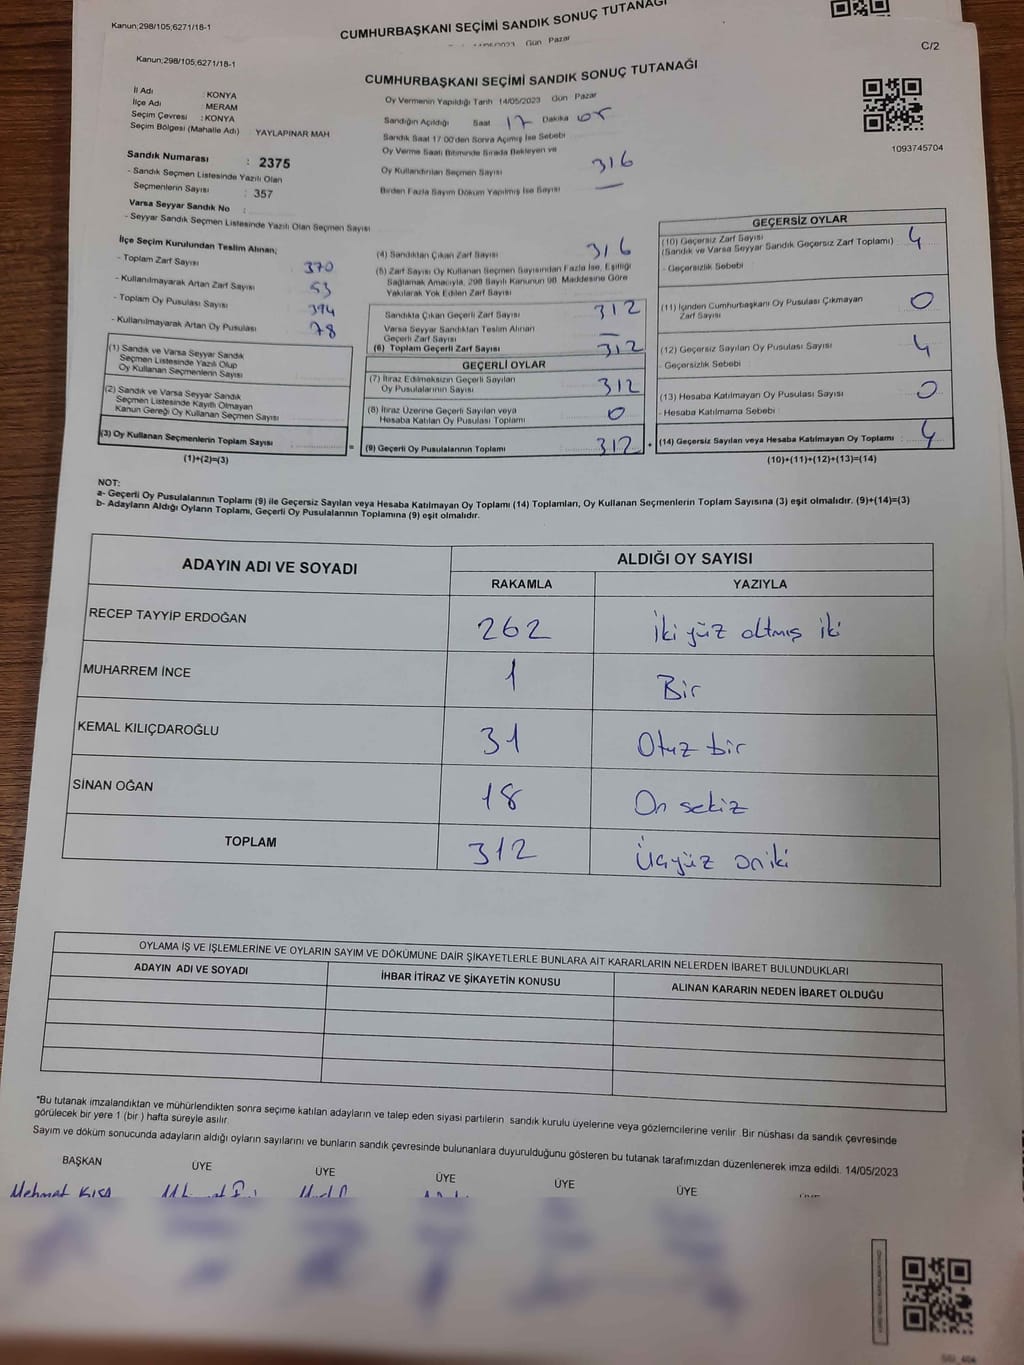 Kanun;298/105;6271/18-1
CUMHURBAŞKANI SEÇİMİ SANDIK SONUÇ TUTANAĞI
Gün Pazar
Kanun;298/105;6271/18-1
C/2
CUMHURBAŞKANI SEÇİMİ SANDIK SONUÇ TUTANAĞI
İl Adı : KONYA
İlçe Adı : MERAM
Seçim Çevresi : KONYA
Seçim Bölgesi (Mahalle Adı) YAYLAPINAR MAH
Sandık Numarası : 2375
- Sandık Seçmen Listesinde Yazılı Olan
Seçmenlerin Sayısı : 357
Varsa Seyyar Sandık No :
- Seyyar Sandık Seçmen Listesinde Yazılı Olan Seçmen Sayısı
Oy Vermenin Yapıldığı Tarih 14/05/2023 Gün Pazar
Sandığın Açıldığı Saat 17 Dakika 05
Sandık Saat 17 00'den Sonra Açılmış İse Sebebi
Oy Verme Saati Bitiminde Sırada Bekleyen ve
Oy Kullandırılan Seçmen Sayısı 316
Birden Fazla Sayım Döküm Yapılmış İse Sayısı —
1093745704
İlçe Seçim Kurulundan Teslim Alınan;
- Toplam Zarf Sayısı 370
- Kullanılmayarak Artan Zarf Sayısı 53
- Toplam Oy Pusulası Sayısı 394
- Kullanılmayarak Artan Oy Pusulası 78
(1) Sandık ve Varsa Seyyar Sandık
Seçmen Listesinde Yazılı Olup
Oy Kullanan Seçmenlerin Sayısı
(2) Sandık ve Varsa Seyyar Sandık
Seçmen Listesinde Kayıtlı Olmayan
Kanun Gereği Oy Kullanan Seçmen Sayısı
(3) Oy Kullanan Seçmenlerin Toplam Sayısı
(1)+(2)=(3)
(4) Sandıktan Çıkan Zarf Sayısı 316
(5) Zarf Sayısı Oy Kullanan Seçmen Sayısından Fazla İse, Eşitliği
Sağlamak Amacıyla, 298 Sayılı Kanunun 98. Maddesine Göre
Yakılarak Yok Edilen Zarf Sayısı
Sandıkta Çıkan Geçerli Zarf Sayısı 312
Varsa Seyyar Sandıktan Teslim Alınan
Geçerli Zarf Sayısı —
(6) Toplam Geçerli Zarf Sayısı 312
GEÇERLİ OYLAR
(7) İtiraz Edilmeksizin Geçerli Sayılan
Oy Pusulalarının Sayısı 312
(8) İtiraz Üzerine Geçerli Sayılan veya
Hesaba Katılan Oy Pusulası Toplamı 0
= (9) Geçerli Oy Pusulalarının Toplamı 312
GEÇERSİZ OYLAR
(10) Geçersiz Zarf Sayısı 4
(Sandık ve Varsa Seyyar Sandık Geçersiz Zarf Toplamı)
- Geçersizlik Sebebi
(11) İçinden Cumhurbaşkanı Oy Pusulası Çıkmayan
Zarf Sayısı 0
(12) Geçersiz Sayılan Oy Pusulası Sayısı 4
- Geçersizlik Sebebi
(13) Hesaba Katılmayan Oy Pusulası Sayısı 0
- Hesaba Katılmama Sebebi
+ (14) Geçersiz Sayılan veya Hesaba Katılmayan Oy Toplamı 4
(10)+(11)+(12)+(13)=(14)
NOT:
a- Geçerli Oy Pusulalarının Toplamı (9) ile Geçersiz Sayılan veya Hesaba Katılmayan Oy Toplamı (14) Toplamları, Oy Kullanan Seçmenlerin Toplam Sayısına (3) eşit olmalıdır. (9)+(14)=(3)
b- Adayların Aldığı Oyların Toplamı, Geçerli Oy Pusulalarının Toplamına (9) eşit olmalıdır.
ADAYIN ADI VE SOYADI ALDIĞI OY SAYISI
RAKAMLA YAZIYLA
RECEP TAYYİP ERDOĞAN 262 İki yüz altmış iki
MUHARREM İNCE 1 Bir
KEMAL KILIÇDAROĞLU 31 Otuz bir
SİNAN OĞAN 18 On sekiz
TOPLAM 312 Üçyüz oniki
OYLAMA İŞ VE İŞLEMLERİNE VE OYLARIN SAYIM VE DÖKÜMÜNE DAİR ŞİKAYETLERLE BUNLARA AİT KARARLARIN NELERDEN İBARET BULUNDUKLARI
ADAYIN ADI VE SOYADI İHBAR İTİRAZ VE ŞİKAYETİN KONUSU ALINAN KARARIN NEDEN İBARET OLDUĞU
*Bu tutanak imzalandıktan ve mühürlendikten sonra seçime katılan adayların ve talep eden siyasi partilerin sandık kurulu üyelerine veya gözlemcilerine verilir. Bir nüshası da sandık çevresinde
görülecek bir yere 1 (bir ) hafta süreyle asılır.
Sayım ve döküm sonucunda adayların aldığı oyların sayılarını ve bunların sandık çevresinde bulunanlara duyurulduğunu gösteren bu tutanak tarafımızdan düzenlenerek imza edildi. 14/05/2023
BAŞKAN ÜYE ÜYE ÜYE ÜYE ÜYE
Mehmat KISA